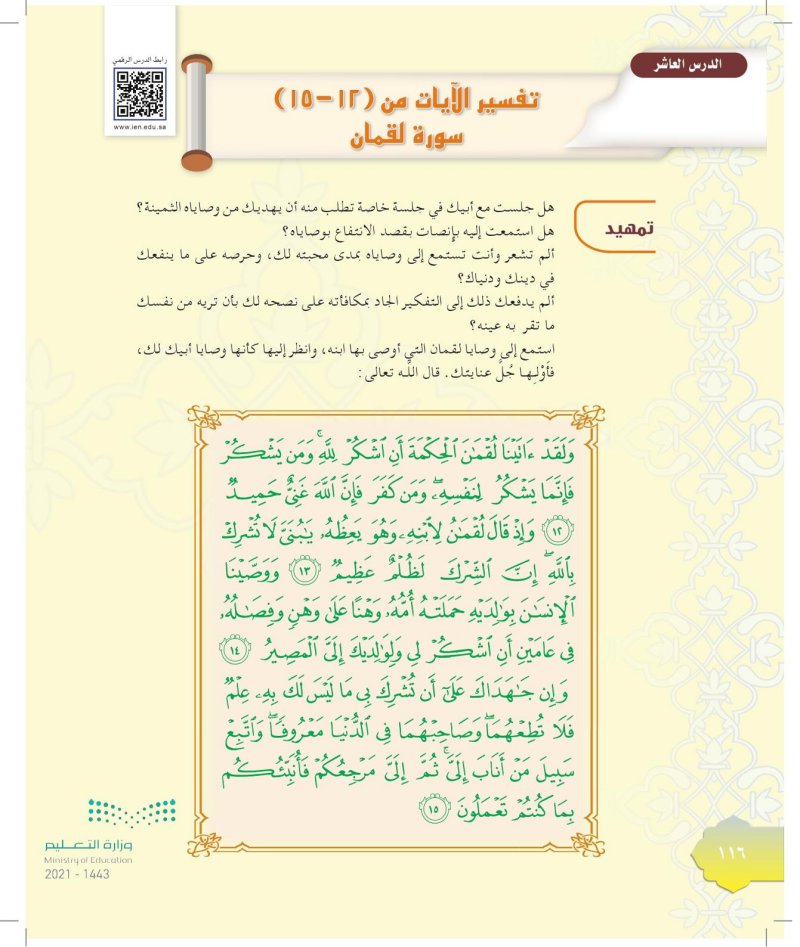 رابط الدرس الرقمي
www.ien.edu.sa
الدرس العاشر
تفسير الآيات من (١٢-١٥)
سورة لقمان
تمهيد
هل جلست مع أبيك في جلسة خاصة تطلب منه أن يهديك من وصاياه الثمينة؟
هل استمعت إليه بإنصات بقصد الانتفاع بوصاياه؟
ألم تشعر وأنت تستمع إلى وصاياه بمدى محبته لك، وحرصه على ما ينفعك
في دينك ودنياك؟
ألم يدفعك ذلك إلى التفكير الجاد بمكافأته على نصحه لك بأن تريه من نفسك
ما تقر به عينه؟
استمع إلى وصايا لقمان التي أوصى بها ابنه، وانظر إليها كأنها وصايا أبيك لك،
فَأَوْلِـهـا جُلَّ عنايتك. قال اللَّـه تعالى:
وَلَقَدْ ءَاتَيْنَا لُقْمَٰنَ ٱلْحِكْمَةَ أَنِ ٱشْكُرْ لِلَّهِۚ وَمَن يَشْكُرْ
فَإِنَّمَا يَشْكُرُ لِنَفْسِهِۦۖ وَمَن كَفَرَ فَإِنَّ ٱللَّهَ غَنِيٌّ حَمِيدٌ
١٢ وَإِذْ قَالَ لُقْمَٰنُ لِٱبْنِهِۦ وَهُوَ يَعِظُهُۥ يَٰبُنَيَّ لَا تُشْرِكْ
بِٱللَّهِۖ إِنَّ ٱلشِّرْكَ لَظُلْمٌ عَظِيمٌ ١٣ وَوَصَّيْنَا
ٱلْإِنسَٰنَ بِوَٰلِدَيْهِ حَمَلَتْهُ أُمُّهُۥ وَهْنًا عَلَىٰ وَهْنٍ وَفِصَٰلُهُۥ
فِي عَامَيْنِ أَنِ ٱشْكُرْ لِي وَلِوَٰلِدَيْكَ إِلَيَّ ٱلْمَصِيرُ ١٤
وَإِن جَٰهَدَاكَ عَلَىٰٓ أَن تُشْرِكَ بِي مَا لَيْسَ لَكَ بِهِۦ عِلْمٌ
فَلَا تُطِعْهُمَاۖ وَصَاحِبْهُمَا فِي ٱلدُّنْيَا مَعْرُوفًاۖ وَٱتَّبِعْ
سَبِيلَ مَنْ أَنَابَ إِلَيَّۚ ثُمَّ إِلَيَّ مَرْجِعُكُمْ فَأُنَبِّئُكُم
بِمَا كُنتُمْ تَعْمَلُونَ ١٥
وزارة التعـليم
Ministry of Education
2021 - 1443
١١٦